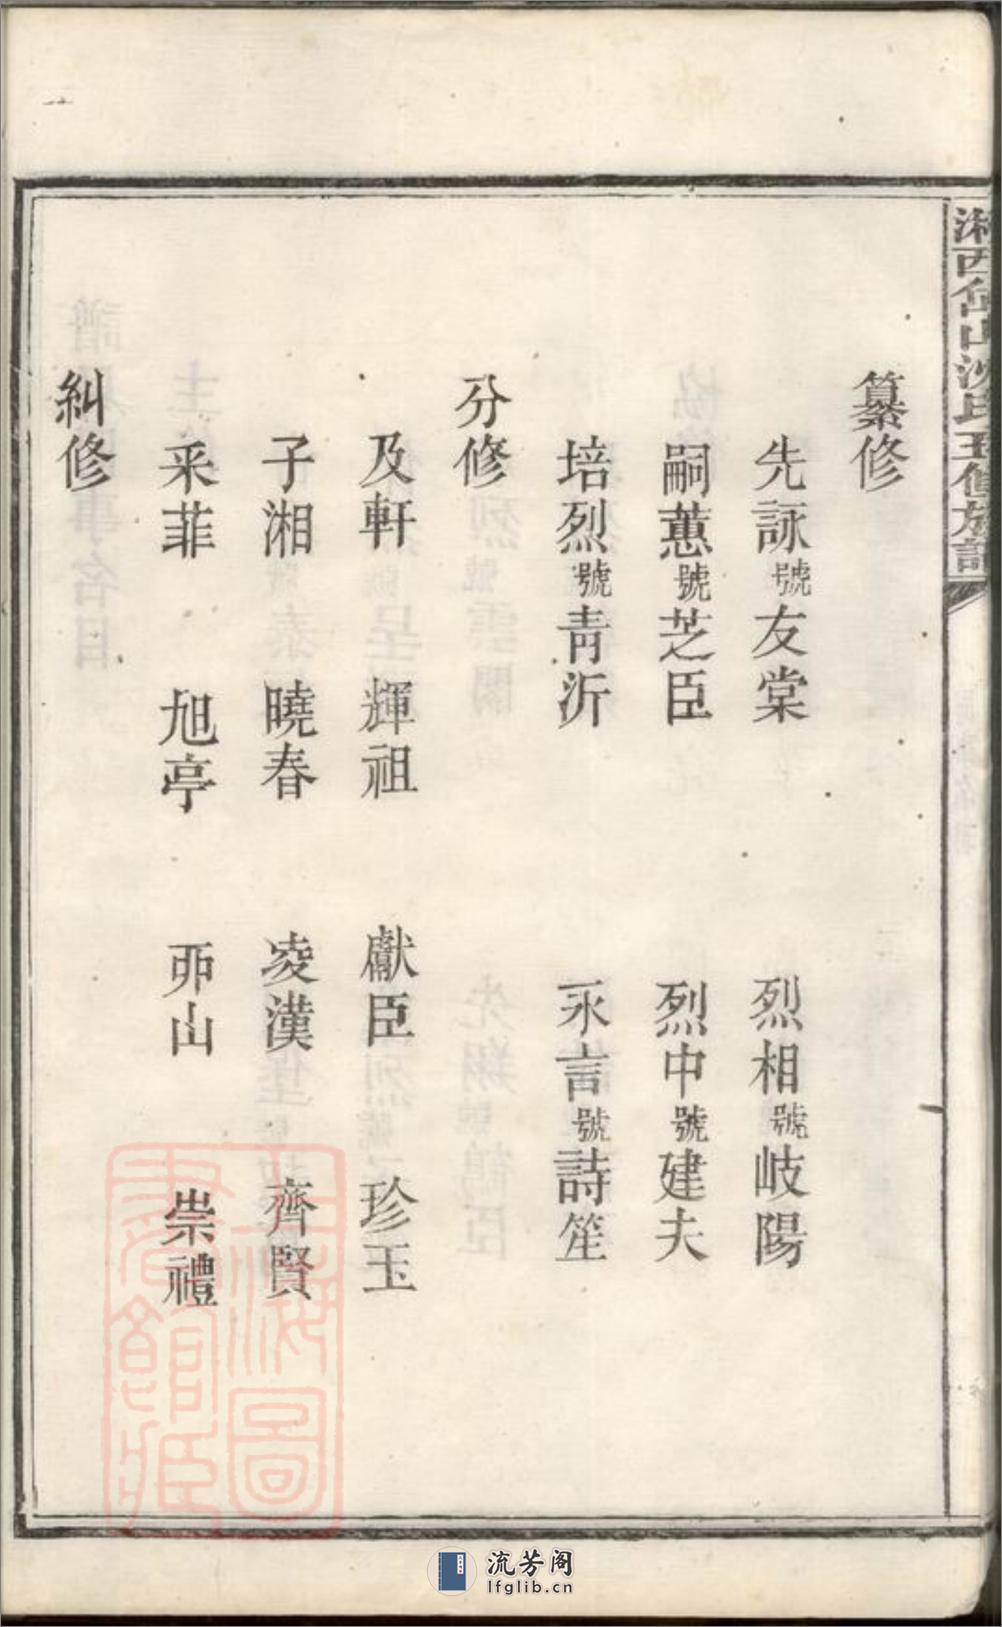 湘西岱山沈氏五修族譜
纂修
先詠號友棠 烈相號岐陽
嗣蕙號芝臣 烈中號建夫
培烈號青沂 永言號詩笙
分修
及軒 輝祖 獻臣 珍玉
子湘 曉春 凌漢 齊賢
采菲 旭亭 丣山 崇禮
糾修
上海圖書館藏
流芳阁
lfglib.cn